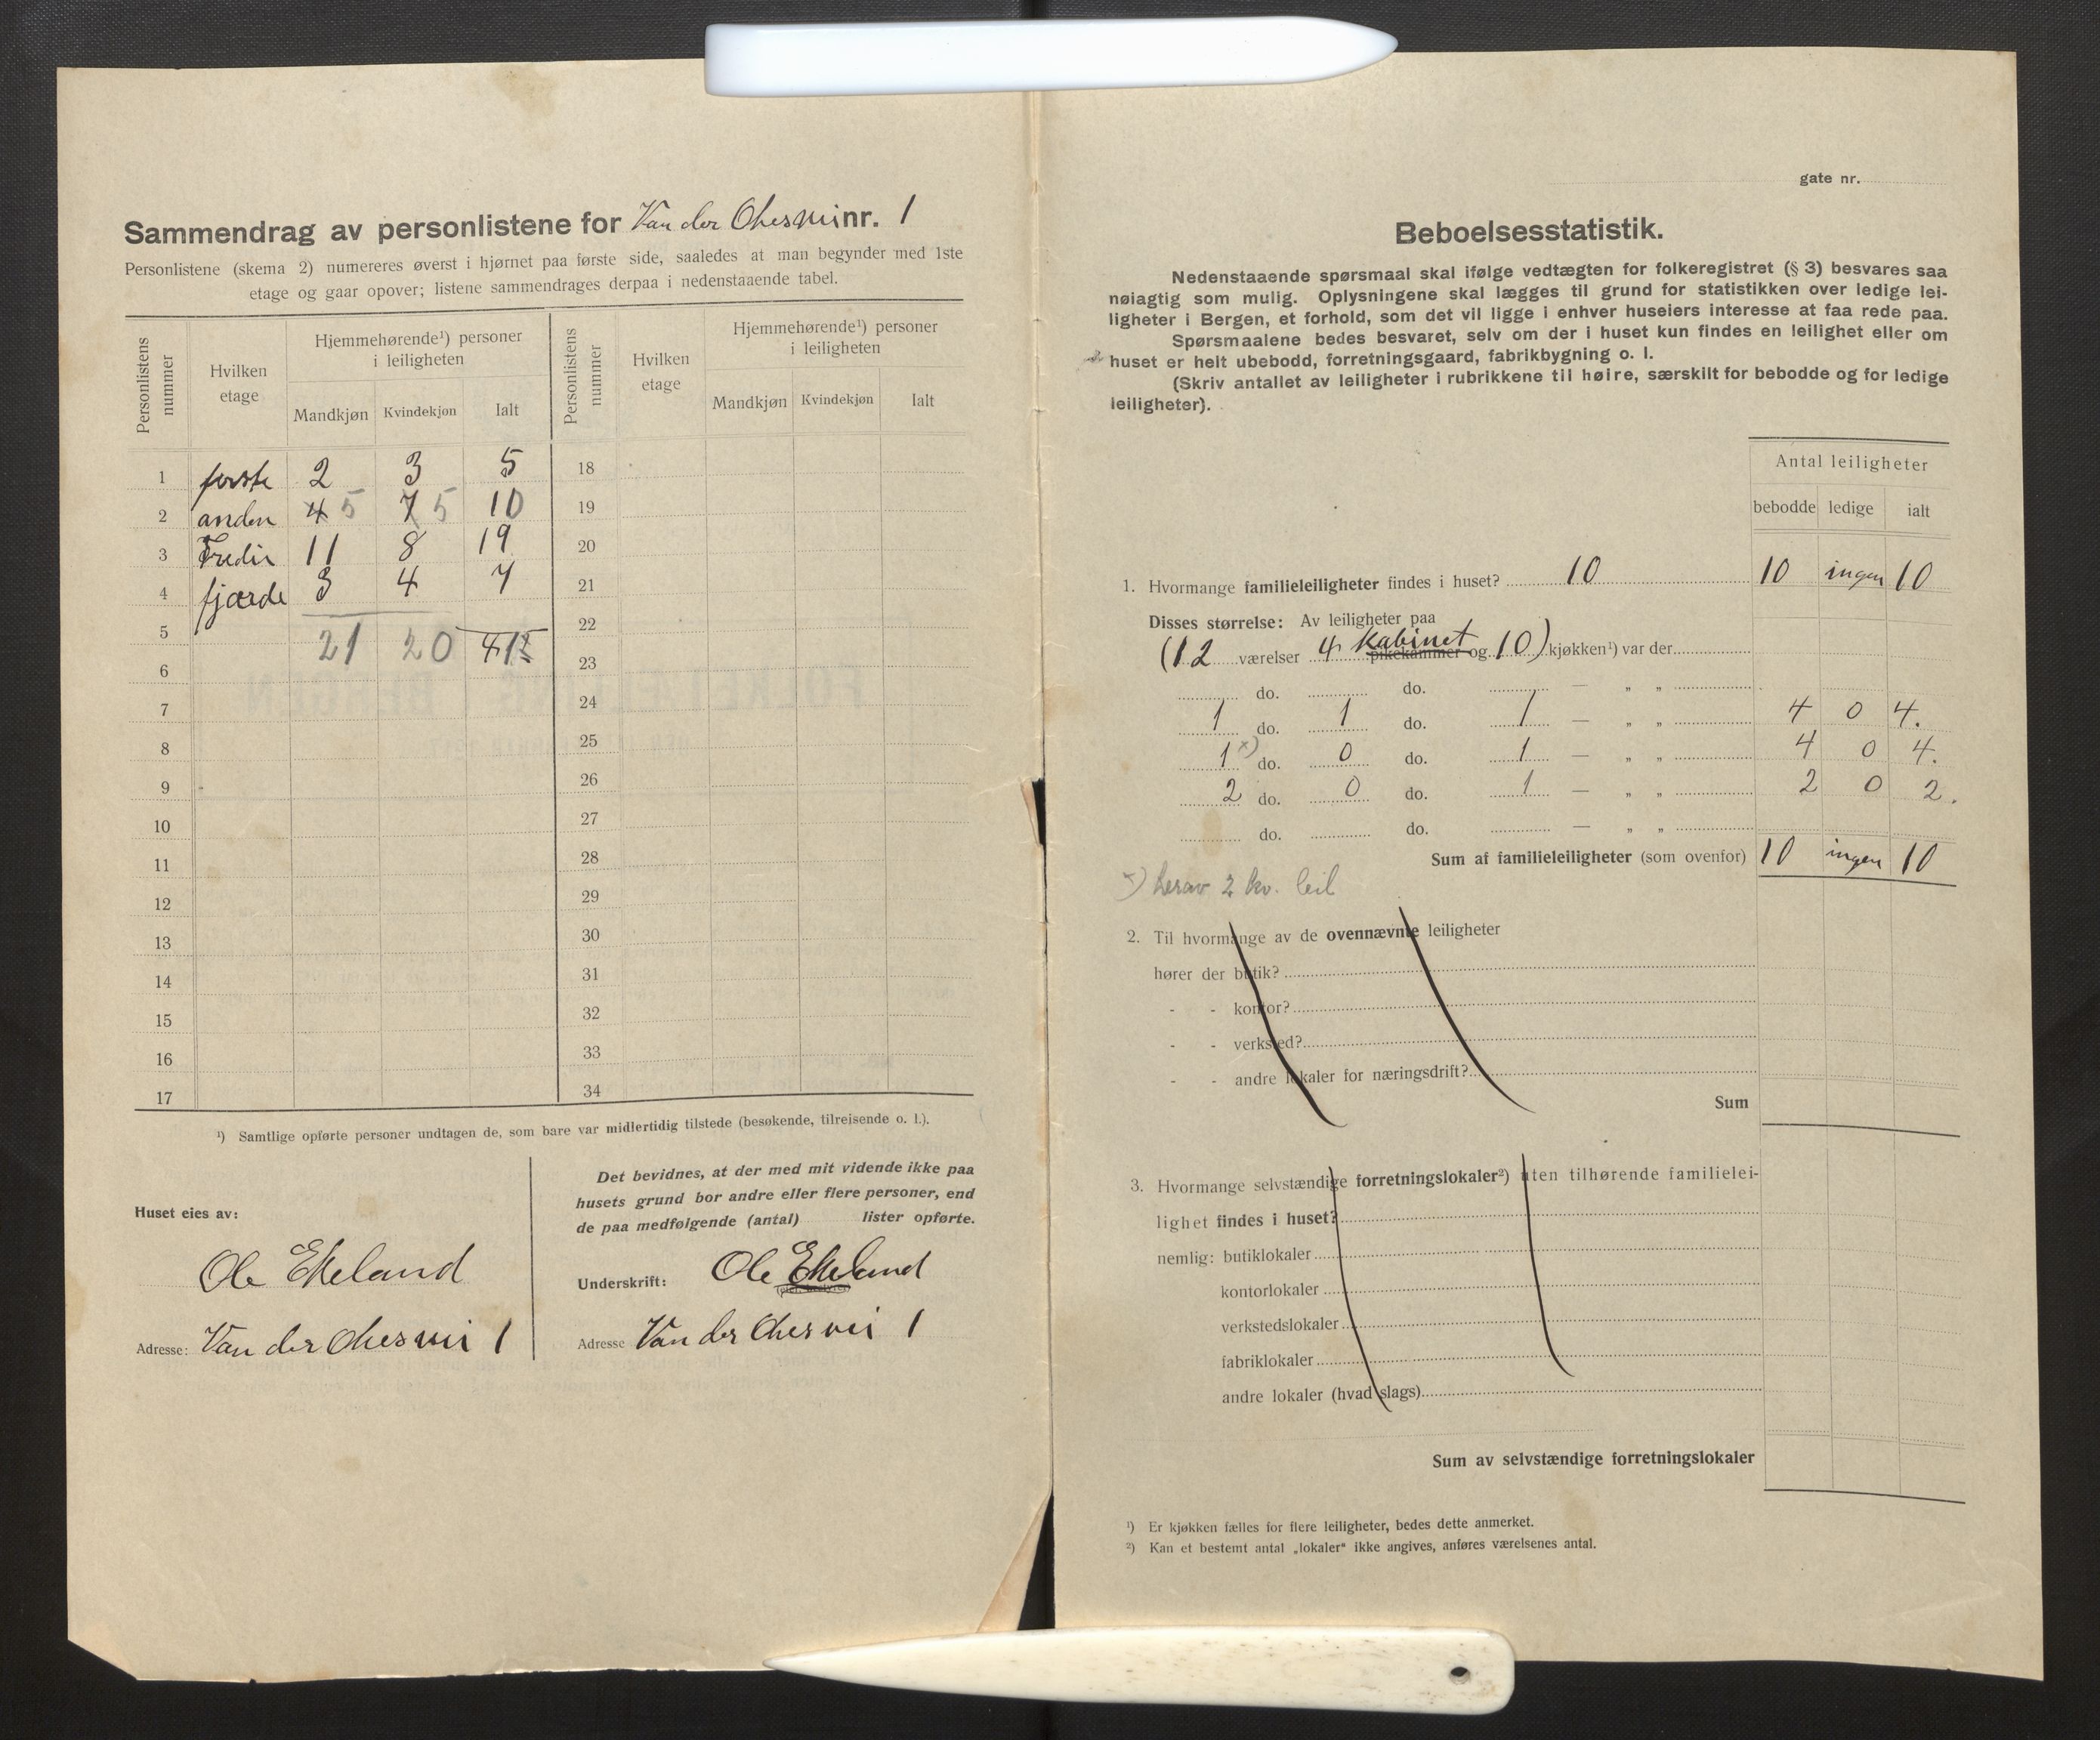 Sammendrag av personlistene for Van der Ohesvei nr. 1
Personlistene (skema 2) numereres øverst i hjørnet paa første side, saaledes at man begynder med 1ste
etage og gaar opover; listene sammendrages derpaa i nedenstaaende tabel.
Personlistens nummer
Hvilken etage
Hjemmehørende¹) personer i leiligheten
Mandkjøn Kvindekjøn Ialt
Personlistens nummer
Hvilken etage
Hjemmehørende¹) personer i leiligheten
Mandkjøn Kvindekjøn Ialt
1 første 2 3 5 18
2 anden 4 5 7 5 10 19
3 Tredie 11 8 19 20
4 fjærde 3 4 7 21
5 21 20 41 22
6 23
7 24
8 25
9 26
10 27
11 28
12 29
13 30
14 31
15 32
16 33
17 34
¹) Samtlige opførte personer undtagen de, som bare var midlertidig tilstede (besøkende, tilreisende o. l.).
Huset eies av:
Ole Ekeland
Adresse: Van der Ohesvei 1
Det bevidnes, at der med mit vidende ikke paa
husets grund bor andre eller flere personer, end
de paa medfølgende (antal) lister opførte.
Underskrift: Ole Ekeland
(eier, bestyrer)
Adresse Van der Ohesvei 1
gate nr.
Beboelsesstatistik.
Nedenstaaende spørsmaal skal ifølge vedtægten for folkeregistret (§ 3) besvares saa
nøiagtig som mulig. Oplysningene skal lægges til grund for statistikken over ledige lei-
ligheter i Bergen, et forhold, som det vil ligge i enhver huseiers interesse at faa rede paa.
Spørsmaalene bedes besvaret, selv om der i huset kun findes en leilighet eller om
huset er helt ubebodd, forretningsgaard, fabrikbygning o. l.
(Skriv antallet av leiligheter i rubrikkene til høire, særskilt for bebodde og for ledige
leiligheter).
Antal leiligheter
bebodde ledige ialt
1. Hvormange familieleiligheter findes i huset? 10 10 ingen 10
Disses størrelse: Av leiligheter paa
kabinet
(12 værelser 4 pikekammer og 10) kjøkken¹) var der
do. do. — „ „
1 do. 1 do. 1 — „ „ 4 0 4.
1 x) do. 0 do. 1 — „ „ 4 0 4.
2 do. 0 do. 1 — „ „ 2 0 2.
do. do. — „ „
Sum af familieleiligheter (som ovenfor) 10 ingen 10
x) herav 2 kv. leil
2. Til hvormange av de ovennævnte leiligheter
hører der butik?
- - kontor?
- - verksted?
- - andre lokaler for næringsdrift?
Sum
3. Hvormange selvstændige forretningslokaler²) uten tilhørende familielei-
lighet findes i huset?
nemlig: butiklokaler
kontorlokaler
verkstedslokaler
fabriklokaler
andre lokaler (hvad slags)
Sum av selvstændige forretningslokaler
¹) Er kjøkken fælles for flere leiligheter, bedes dette anmerket.
²) Kan et bestemt antal „lokaler“ ikke angives, anføres værelsenes antal.